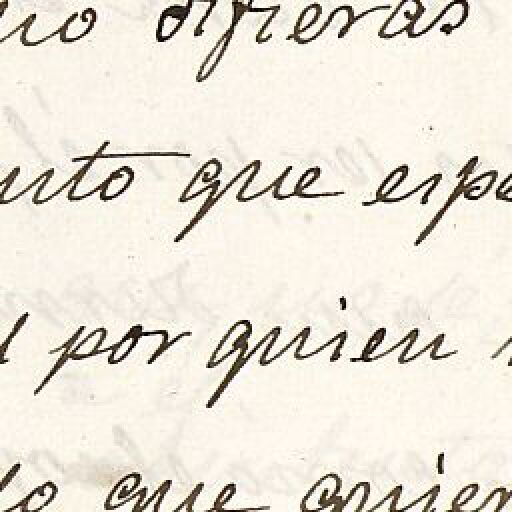 no difieras
nto que espe
l por quien
lo que quier